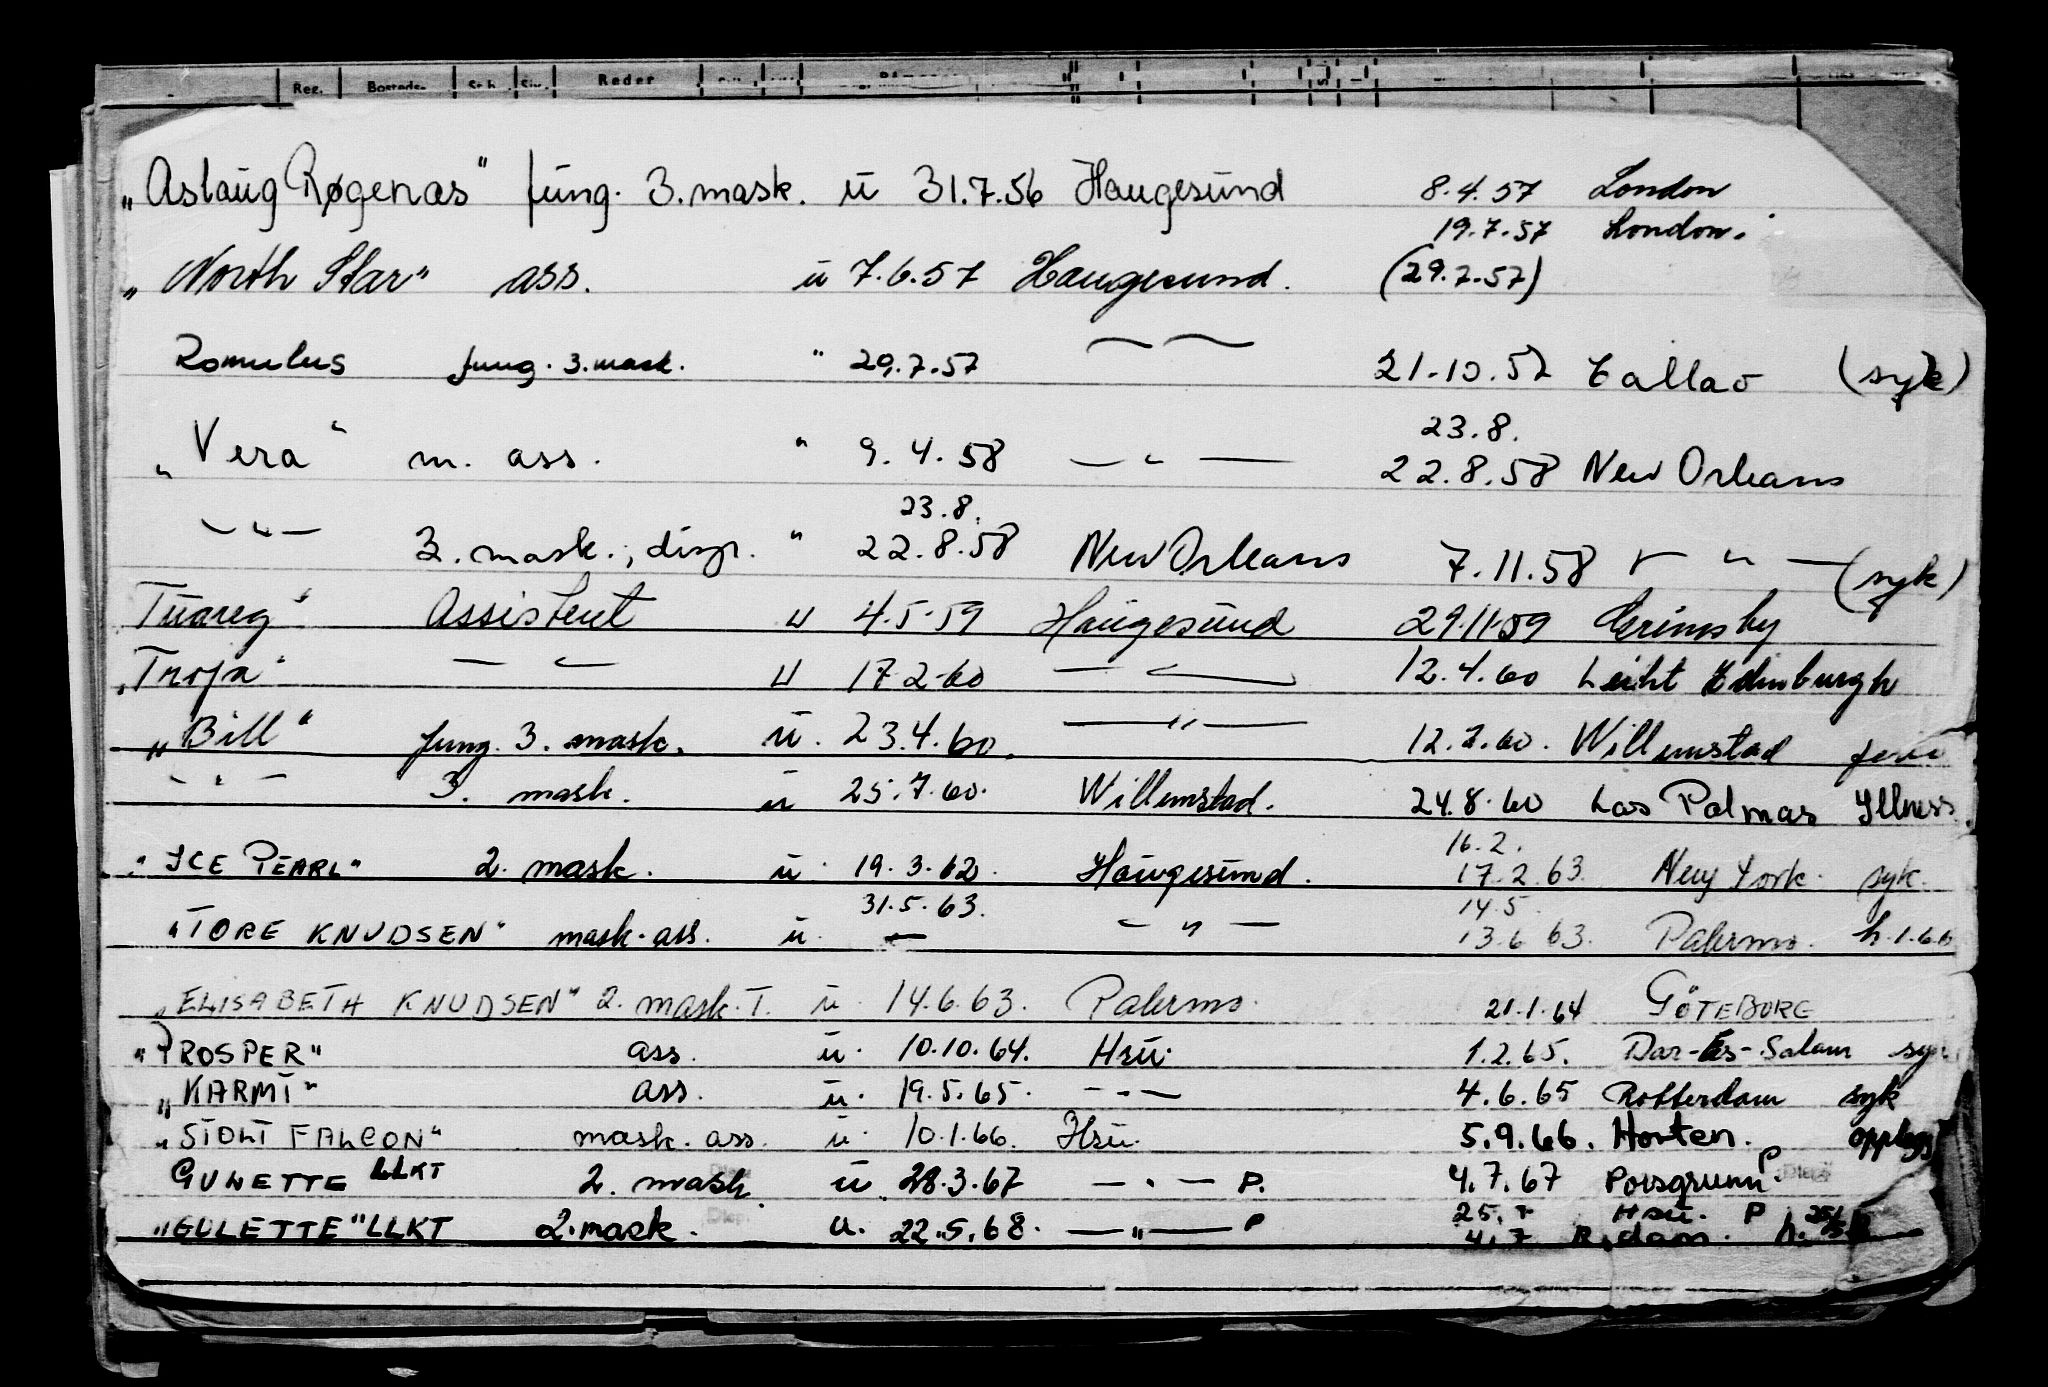 Reg. Bosteds- Reder
„Aslaug Røgenæs" fung. 3. mask. u 31.7.56 Haugesund 8.4.57 London
19.7.57 London.
„North Star" ass. u 7.6.57 Haugesund. (29.7.57)
Romulus fung. 3. mask. " 29.7.57 — — 21.10.57 Callao (syk)
23.8.
„Vera" m. ass. " 9.4.58 — " — 22.8.58 New Orleans
23.8.
— " — 3. mask., disp. " 22.8.58 New Orleans 7.11.58 — " — (syk)
Tuareg" Assistent u 4.5.59 Haugesund 29.11.59 Grimsby
„Troja" — " — u 17.2.60 — " — 12.4.60 Leiht Edinburgh
„Bill" fung. 3. mask. u. 23.4.60. — " — 12.7.60. Willemstad
— " — 3. mask. u 25.7.60. Willemstad. 24.8.60 Las Palmas Illness.
16.2.
"ICE PEARL" 2. mask. u. 19.3.62. Haugesund. 17.2.63. New York. syk.
31.5.63. 14.5.
"TORE KNUDSEN" mask. ass. u. — — " — 13.6.63. Palermo. h.1.66
„ELISABETH KNUDSEN" 2. mask. T. u. 14.6.63. Palermo. 21.1.64 GÖTEBORG
"PROSPER" ass. u. 10.10.64. Hsu. 1.2.65. Dar-Es-Salam syk
„KARMT" ass. u. 19.5.65. — " — 4.6.65 Rotterdam syk
„STOLT FALCON" mask. ass. u. 10.1.66. Hsu. 5.9.66. Horten. opplagt
GULETTE LLKT 2. mask u. 28.3.67 — " — P. 4.7.67 Porsgrunn P
25.7 Hsu. P
"GULETTE" LLKT 2. mask. u. 22.5.68. — " — P 4.7 R.dam.